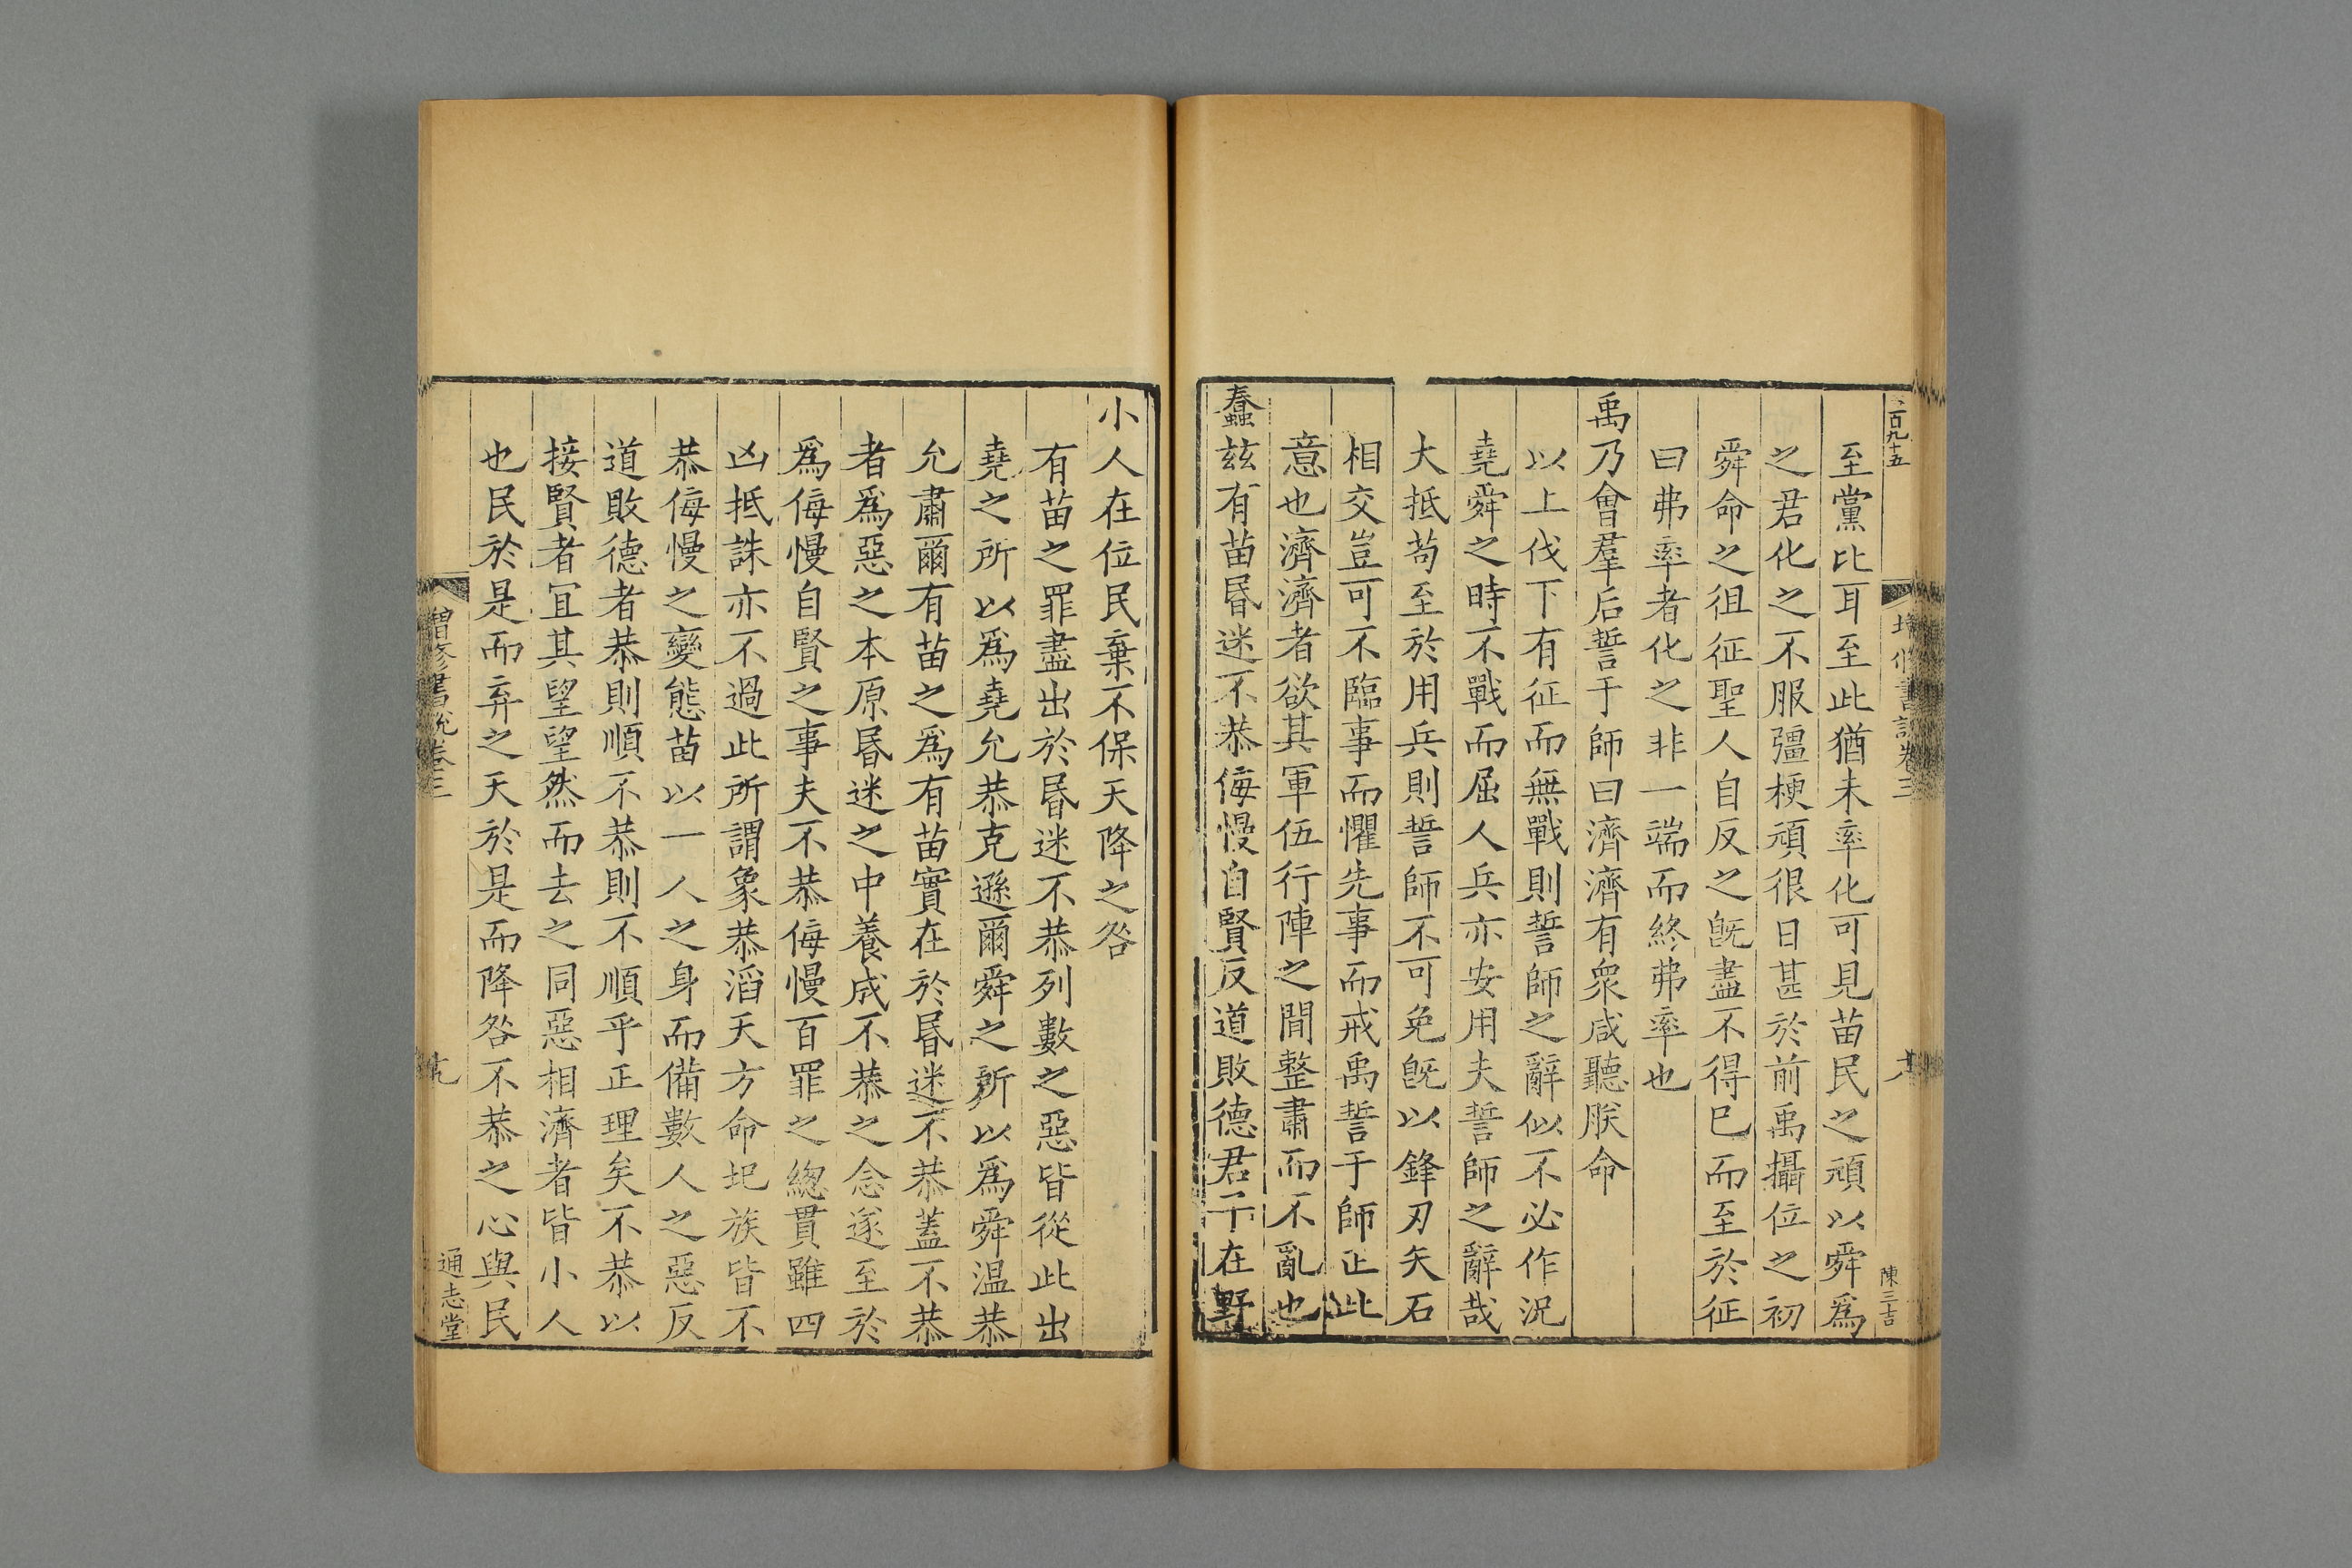 百九十五
增修書說卷三
陳三吉
至黨比耳至此猶未率化可見苗民之頑以舜爲
之君化之不服彊梗頑很日甚於前禹攝位之初
舜命之徂征聖人自反之旣盡不得已而至於征
曰弗率者化之非一端而終弗率也
禹乃會羣后誓于師曰濟濟有衆咸聽朕命
以上伐下有征而無戰則誓師之辭似不必作況
堯舜之時不戰而屈人兵亦安用夫誓師之辭哉
大抵苟至於用兵則誓師不可免旣以鋒刃矢石
相交豈可不臨事而懼先事而戒禹誓于師正此
意也濟濟者欲其軍伍行陣之間整肅而不亂也
蠢兹有苗昬迷不恭侮慢自賢反道敗德君子在野
小人在位民棄不保天降之咎
有苗之罪盡出於昬迷不恭列數之惡皆從此出
堯之所以爲堯允恭克遜爾舜之所以爲舜温恭
允肅爾有苗之爲有苗實在於昬迷不恭蓋不恭
者爲惡之本原昬迷之中養成不恭之念遂至於
爲侮慢自賢之事夫不恭侮慢百罪之緫貫雖四
凶抵誅亦不過此所謂象恭滔天方命圯族皆不
恭侮慢之變態苗以一人之身而備數人之惡反
道敗德者恭則順不恭則不順乎正理矣不恭以
接賢者宜其望望然而去之同惡相濟者皆小人
也民於是而弃之天於是而降咎不恭之心與民
增修書說卷三
九
通志堂